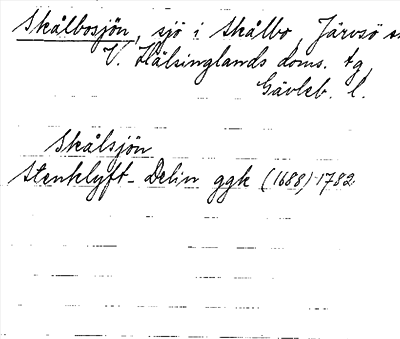 Skålbosjön, sjö i Skålbo, Järvsö sn
V. Hälsinglands doms. tg
Gävleb. l.
Skålsjön
Stenklyft-Delin ggk (1688) 1782